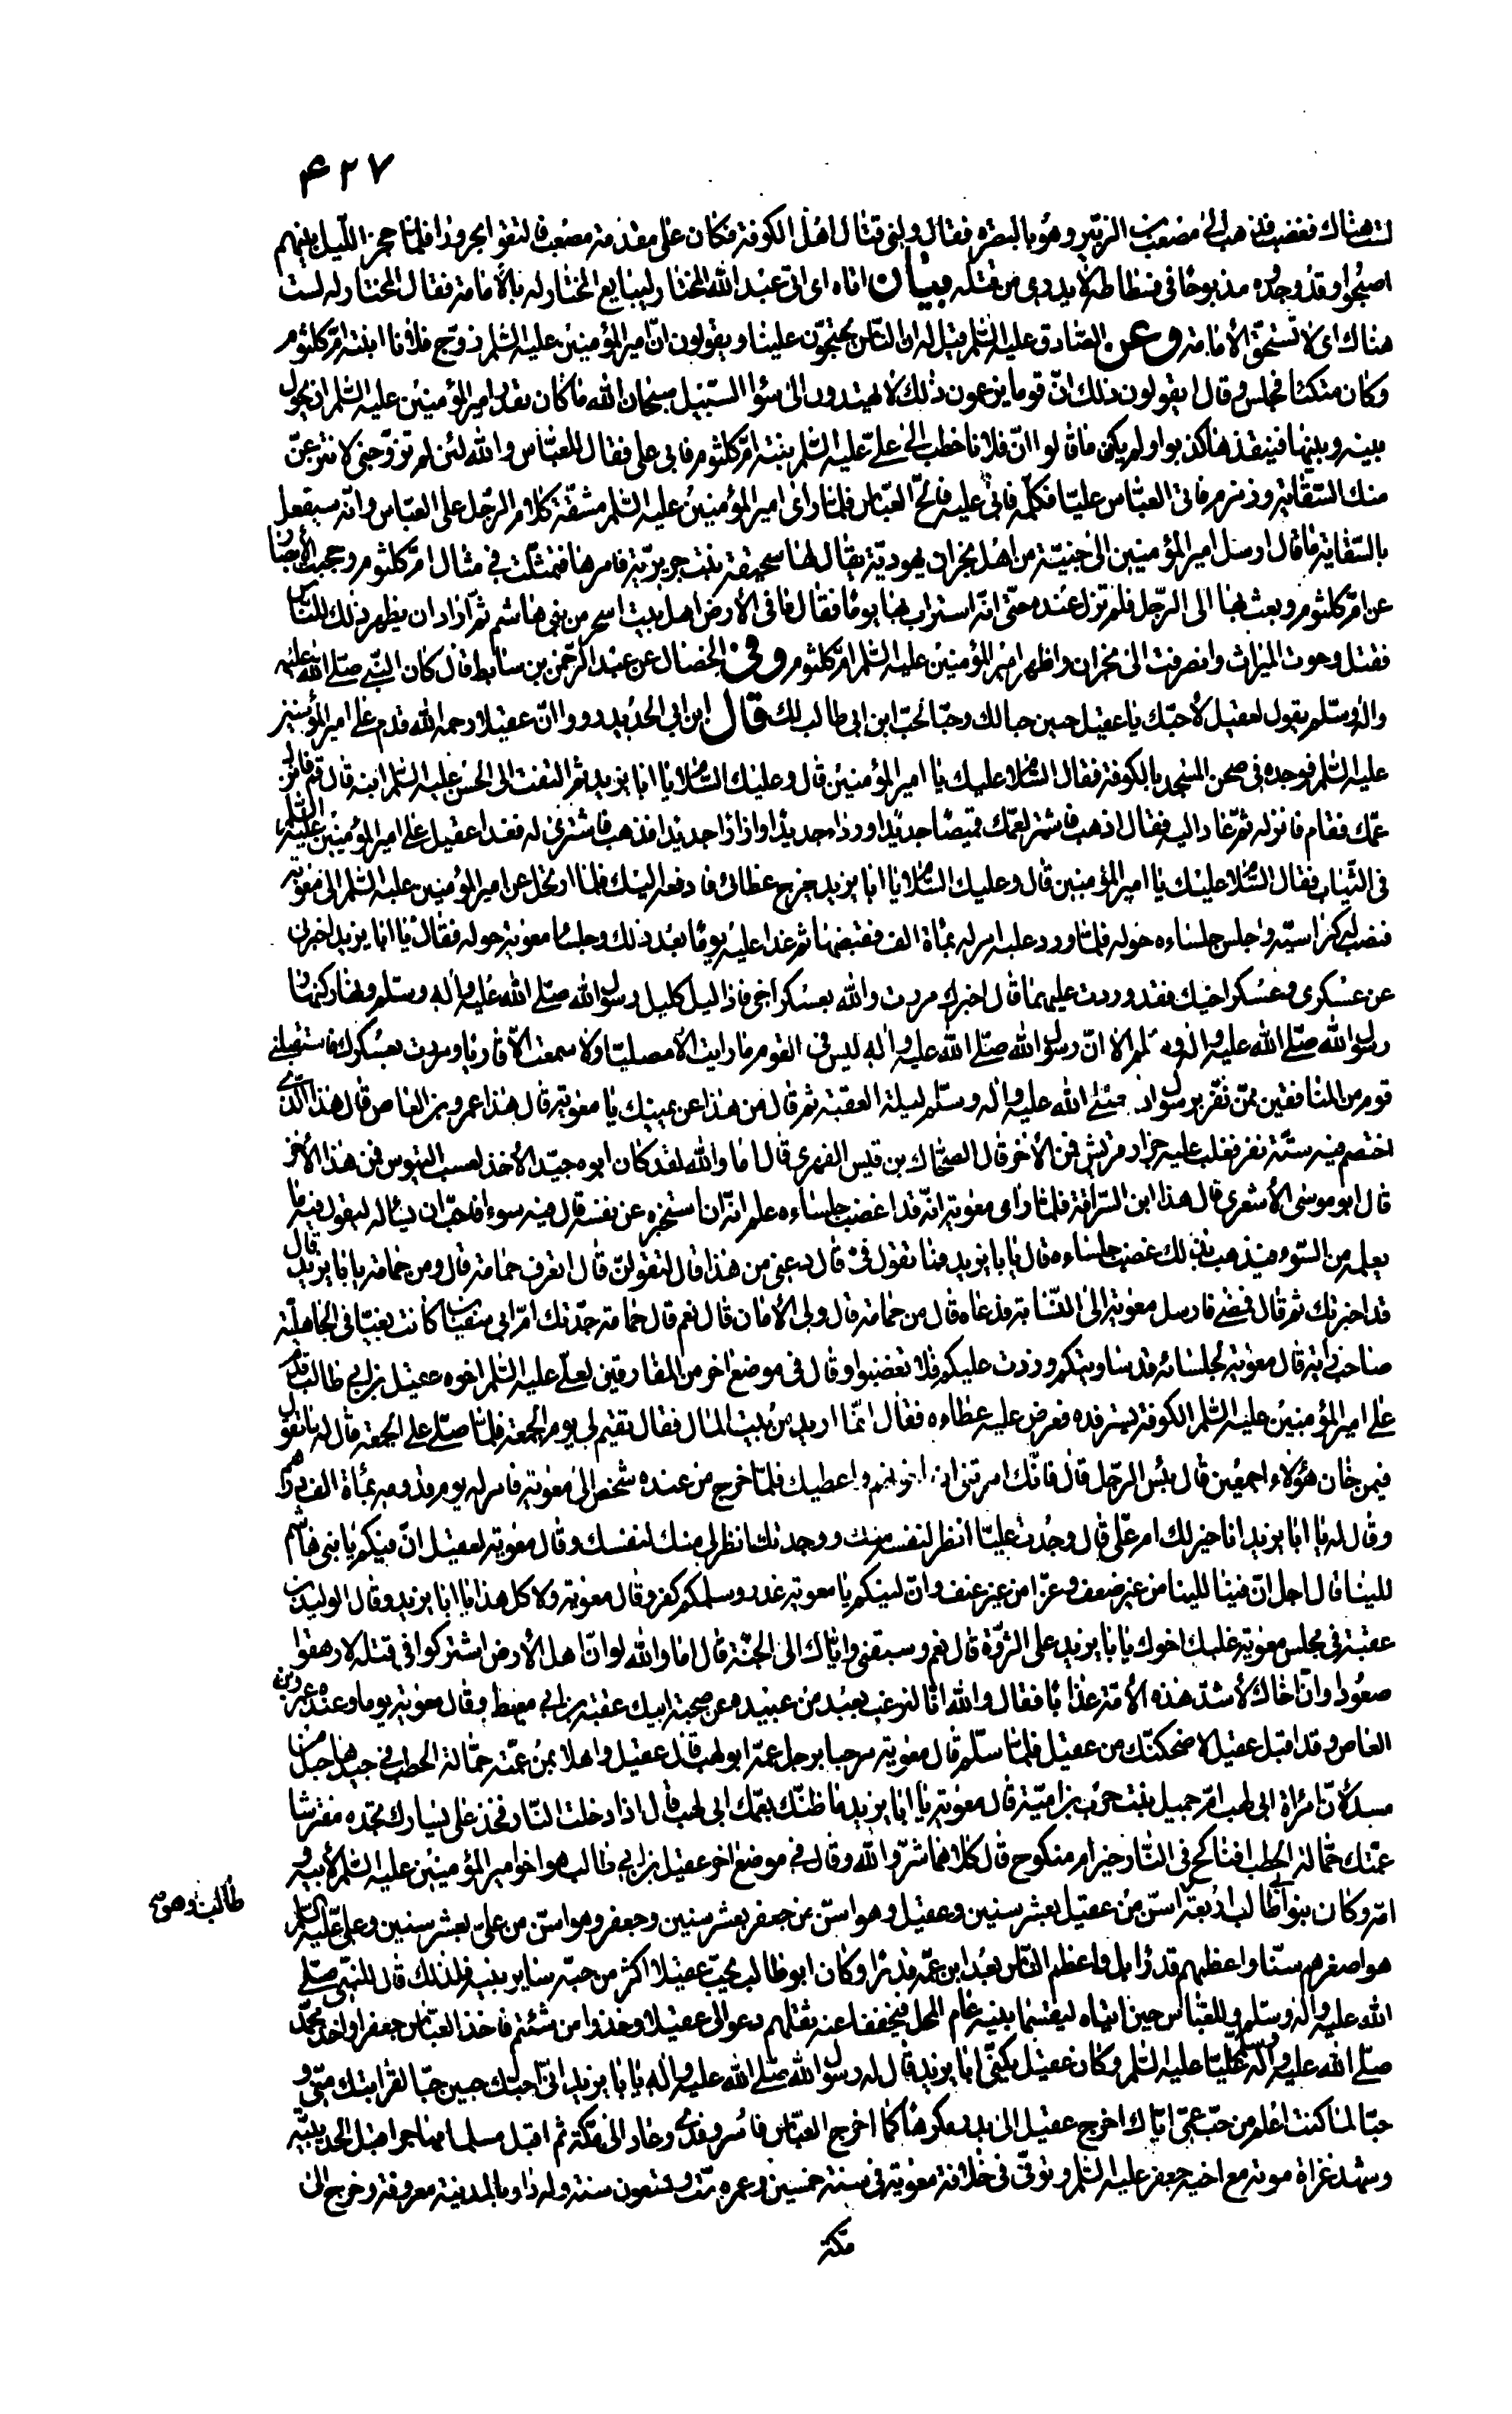 ۴۲۷
لست هناك فغضب فذهب الى مصعب بن الزبير وهو بالبصرة فقال ولني قتال اهل الكوفة فكان على مقدمة مصعب فالتقوا بحرورا فلما حجز الليل بينهم
اصبحوا وقد وجدوه مذبوحا في فسطاطه لا يدرى من قتله بيان اتاه اى اتى عبد الله المختار ليبايع المختار له بالامامة فقال المختار له لست
هناك اى لا تستحق الامامة وعن الصادق عليه السلم قيل له ان الناس يحتجون علينا ويقولون ان امير المؤمنين عليه السلم زوج فلانا ابنته ام كلثوم
وكان متكئا فجلس وقال ايقولون ذلك ان قوما يزعمون ذلك لا يهتدون الى سواء السبيل سبحان الله ما كان يقدر امير المؤمنين عليه السلم ان يحول
بينه وبينها فينقذها كذبوا ولم يكن ما قالوا ان فلانا خطب الى علي عليه السلم بنته ام كلثوم فابى علي فقال للعباس والله لئن لم تزوجني لانتزعن
منك السقاية وزمزم فاتى العباس عليا فكلمه فابى عليه فالح العباس فلما راى امير المؤمنين عليه السلم مشقة كلام الرجل على العباس وانه سيفعل
بالسقاية ما قال ارسل امير المؤمنين الى جنية من اهل نجران يهودية يقال لها سحيقة بنت جريرية فامرها فتمثلت في مثال ام كلثوم وحجبت الابصار
عن ام كلثوم وبعث بها الى الرجل فلم تزل عنده حتى انه استراب بها يوما فقال ما في الارض اهل بيت اسحر من بني هاشم ثم اراد ان يظهر ذلك للناس
فقتل وحوت الميراث وانصرفت الى نجران واظهر امير المؤمنين عليه السلم ام كلثوم وفي الخصال عن عبد الرحمن بن سابط قال كان النبي صلى الله عليه
واله وسلم يقول لعقيل لاحبك يا عقيل حبين حبا لك وحبا لحب ابي طالب لك قال ابن ابي الحديد رووا ان عقيلا رحمه الله قدم على امير المؤمنين
عليه السلم فوجده في صحن المسجد بالكوفة فقال السلام عليك يا امير المؤمنين قال وعليك السلام يا ابا يزيد ثم التفت الى الحسن عليه السلم ابنه قال قم فانزل
عمك فقام فانزله ثم عاد اليه فقال اذهب فاشتر لعمك قميصا جديدا ورداء جديدا وازارا جديدا فذهب فاشترى له فغدا عقيل على امير المؤمنين عليه السلم
في الثياب فقال السلام عليك يا امير المؤمنين قال وعليك السلام يا ابا يزيد يخرج عطائى فادفعه اليك فلما ارتحل عن امير المؤمنين عليه السلم الى معوية
فنصب له كراسيه واجلس جلساءه حوله فلما ورد عليه امر له بمأة الف فقبضها ثم غدا عليه يوما بعد ذلك وجلساء معوية حوله فقال يا ابا يزيد اخبرني
عن عسكرى وعسكر اخيك فقد وردت عليهما قال اخبرك مررت والله بعسكر اخي فاذا ليل كليل رسول الله صلى الله عليه واله وسلم ونهار كنهار
رسول الله صلى الله عليه واله وسلم الا ان رسول الله صلى الله عليه واله ليس في القوم ما رايت الا مصليا ولا سمعت الا قاريا ومررت بعسكرك فاستقبلني
قوم من المنافقين ممن نفر برسول الله صلى الله عليه واله وسلم ليلة العقبة ثم قال من هذا عن يمينك يا معوية قال هذا عمرو بن العاص قال هذا الذى
اختصم فيه ستة نفر فغلب عليه جزار قريش فمن الاخر قال الضحاك بن قيس الفهرى قال اما والله لقد كان ابوه جيد الاخذ لعسب التيوس فمن هذا الاخر
قال ابو موسى الاشعرى قال هذا ابن السراقة فلما راى معوية انه قد اغضب جلساءه علم انه ان استخبره عن نفسه قال فيه سوءا فاحب ان يسأله ليقول فيه ما
يعلمه من السوء فيذهب بذلك غضب جلساءه قال يا با يزيد فما تقول في قال دعني من هذا قال لتقولن قال اتعرف حمامة قال ومن حمامة يا با يزيد قال
قد اخبرتك ثم قال فمضى فارسل معوية الى النسابة فدعاه قال من حمامة قال ولي الامان قال نعم قال حمامة جدتك ام ابي سفيان كانت بغيا في الجاهلية
صاحب راية قال معوية لجلسائه قد ساويتكم وزدت عليكم فلا تغضبوا وقال في موضع اخر من المفارقين لعلي عليه السلم اخوه عقيل بن ابي طالب قدم
على امير المؤمنين عليه السلم الكوفة يسترفده فعرض عليه عطاءه فقال انما اريد من بيت المال فقال تقيم لي يوم الجمعة فلما صلى علي الجمعة قال له ما تقول
فيمن خان هؤلاء اجمعين قال بئس الرجل قال فانك امرتني ان اخونهم واعطيك فلما خرج من عنده شخص الى معوية فامر له يوم قدومه بمأة الف درهم
وقال له يا ابا يزيد انا خير لك ام علي قال وجدت عليا انظر لنفسه منك ووجدتك انظر لي منك لنفسك وقال معوية لعقيل ان فيكم يا بني هاشم
للينا قال اجل ان فينا للينا من غير ضعف وعزا من غير عنف وان لينكم يا معوية غدر وسلمكم كفر وقال معوية ولا كل هذا يا ابا يزيد وقال الوليد بن
عقبة في مجلس معوية غلبك اخوك يا با يزيد على الثروة قال نعم وسبقني واياك الى الجنة قال اما والله لو ان اهل الارض اشتركوا في قتله لارهقوا
صعودا وان اخاك لاشد هذه الامة عذابا فقال والله انا لنرغب بعبد من عبيده عن صحبة ابيك عقبة بن ابي معيط وقال معوية يوما وعنده عمرو بن
العاص وقد اقبل عقيل لاضحكنك من عقيل فلما سلم قال معوية مرحبا برجل عمه ابو لهب قال عقيل واهلا بمن عمته حمالة الحطب في جيدها حبل من
مسد لان امراة ابي لهب ام جميل بنت حرب بن امية قال معوية يا ابا يزيد ما ظنك بعمك ابي لهب قال اذا دخلت النار فخذ على يسارك تجده مفترشا
عمتك حمالة الحطب افناكح في النار خير ام منكوح قال كلاهما شر والله وقال في موضع اخر عقيل بن ابي طالب هو اخو امير المؤمنين عليه السلم لابيه و
امه وكان بنو ابي طالب اربعة اسن من عقيل بعشر سنين وعقيل وهو اسن من جعفر بعشر سنين وجعفر وهو اسن من علي بعشر سنين وعلي عليه السلم
طالب وهو
هو اصغرهم سنا واعظمهم قدرا بل واعظم الناس بعد ابن عمه قدرا وكان ابو طالب يحب عقيلا اكثر من حبه ساير بنيه فلذلك قال للنبي صلى
الله عليه واله وسلم وللعباس حين اتياه ليقتسما بنيه عام المحل فيخففا عنه ثقلهم دعوا لى عقيلا وخذوا من شئتم فاخذ العباس جعفرا واخذ محمد
صلى الله عليه واله وسلم عليا عليه السلم وكان عقيل يكنى ابا يزيد قال له رسول الله صلى الله عليه واله يا با يزيد انى احبك حبين حبا لقرابتك مني و
حبا لما كنت اعلم من حب عمي اياك اخرج عقيل الى بدر مكرها كما اخرج العباس فاسر وفدى وعاد الى مكة ثم اقبل مسلما مهاجرا قبل الحديبية
وشهد غزاة موتة مع اخيه جعفر عليه السلم وتوفى في خلافة معوية في سنة خمسين وعمره ست وتسعون سنة وله دار بالمدينة معروفة وخرج الى
مكة